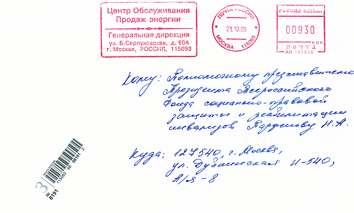 Центр Обслуживания
Продаж энергии
Генеральная дирекция
ул. Б.Серпуховская, д. 60А
г. Москва, РОССИЯ, 115093
МОСКВА 115093
00930
Кому: Полномочному представителю
Президента Всероссийского
Фонда социально-правовой
защиты и реабилитации
инвалидов Н.А.
Куда: 127540, г. Москва,
ул. Дубнинская И-540,
А/я-8